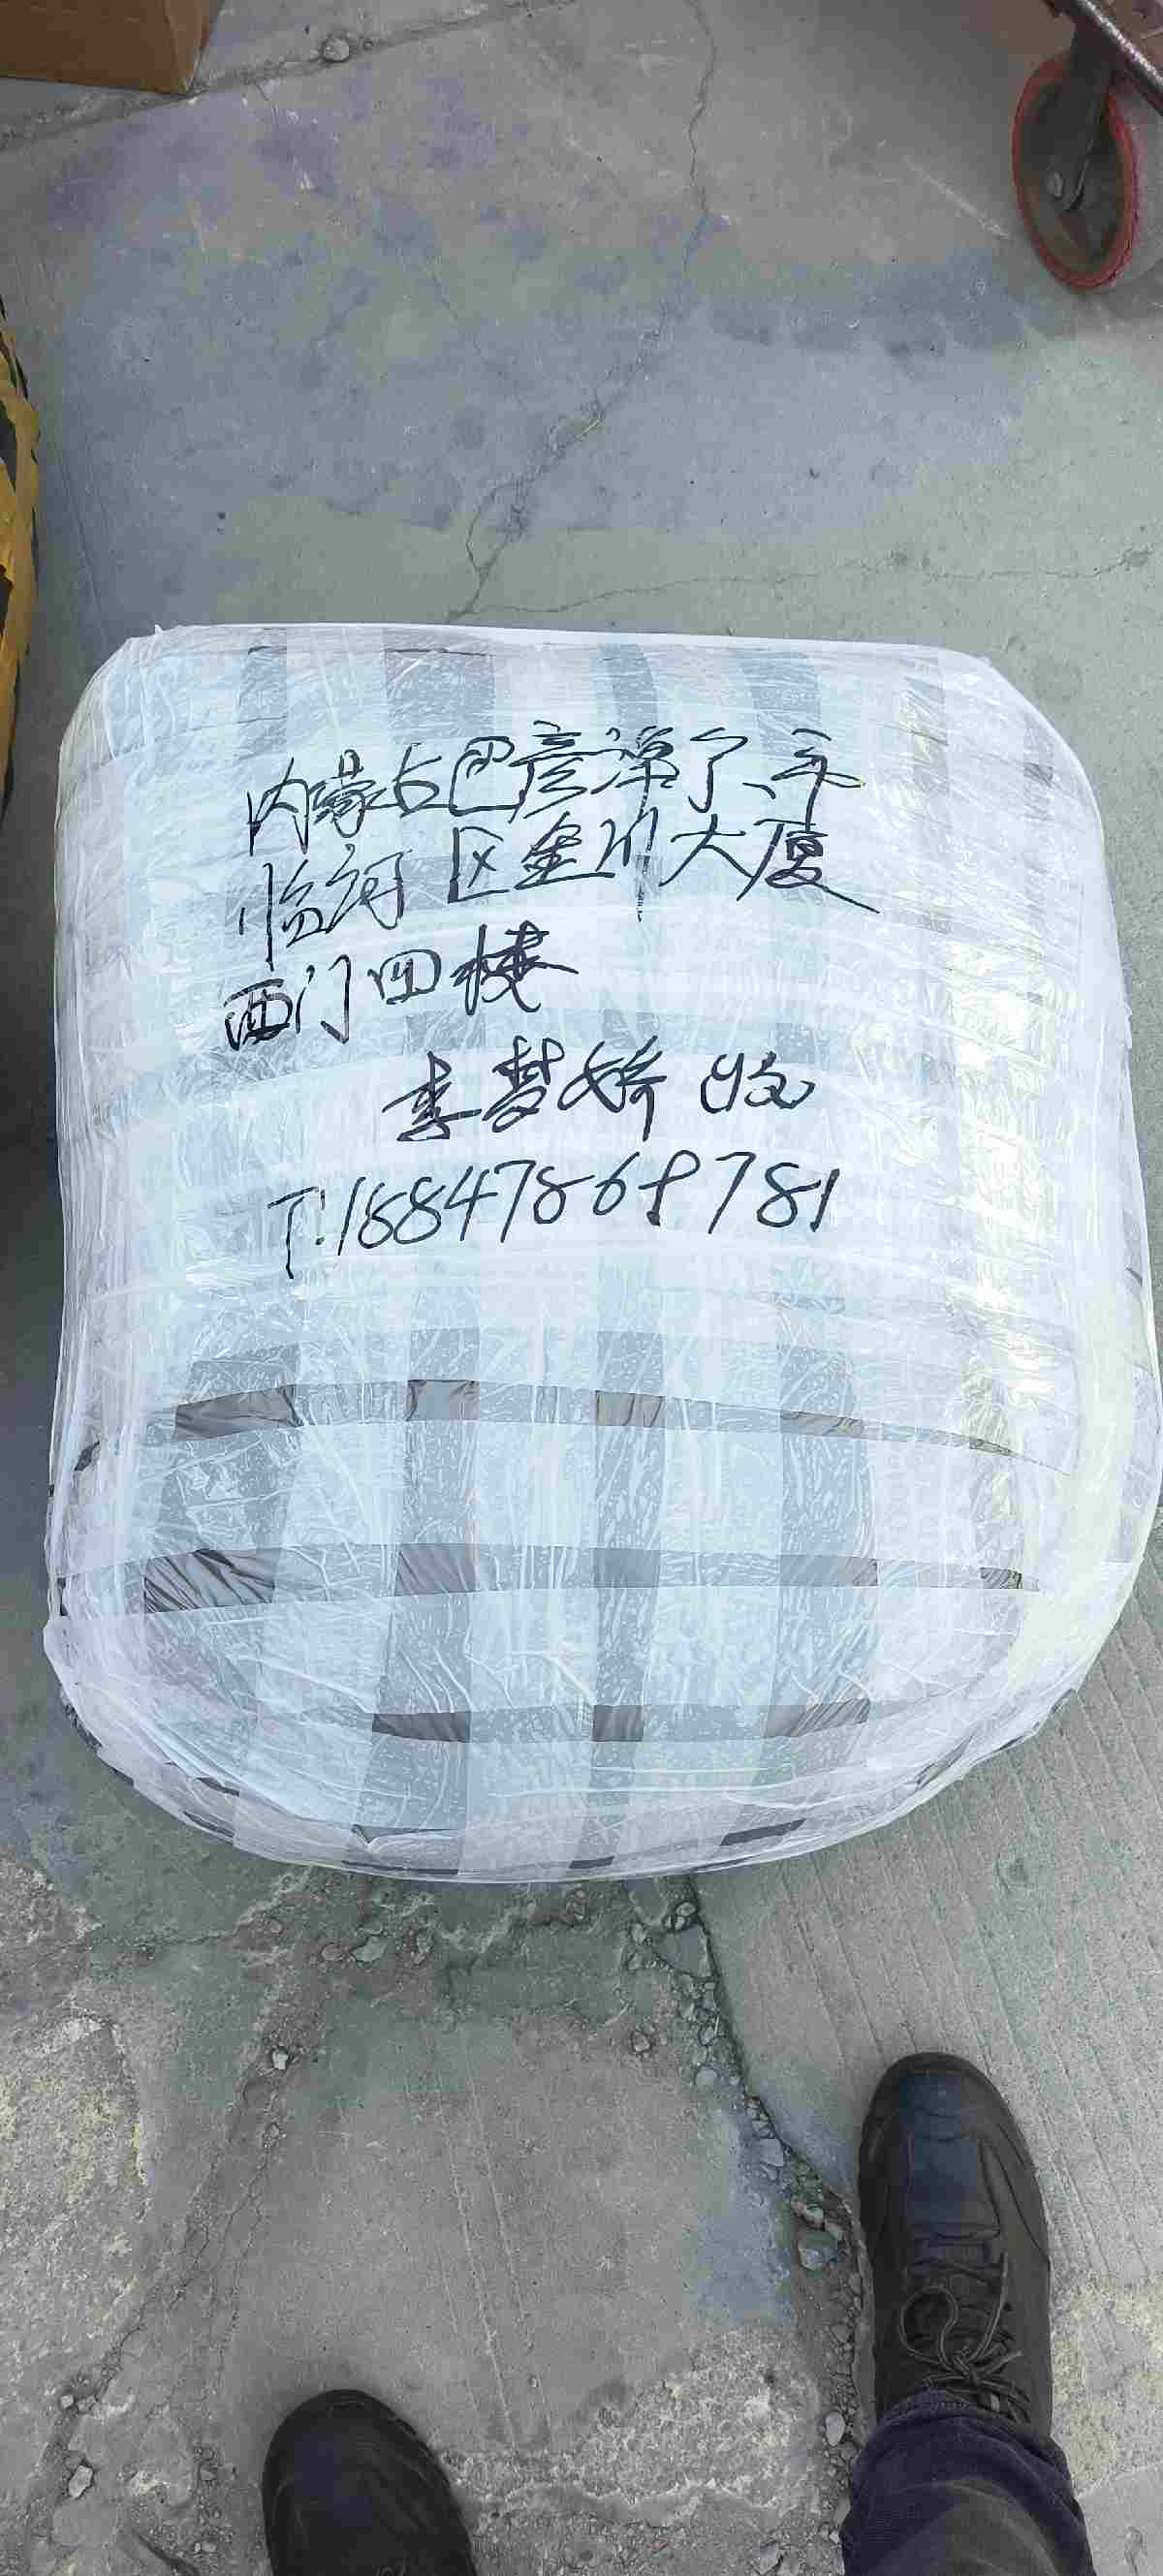 内蒙古巴彦淖尔市
临河区金川大厦
西门四楼
李梦娇 收
T:18847869781